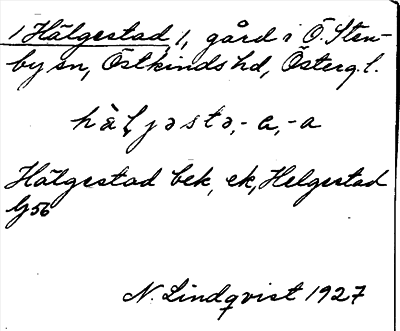 1 Hälgestad 1, gård i Ö. Sten-
by sn, Östkinds hd, Österg. l.
hàl̥jəstə, -a, -a
Hälgestad bek, ek, Helgestad
G 56
N. Lindqvist 1927